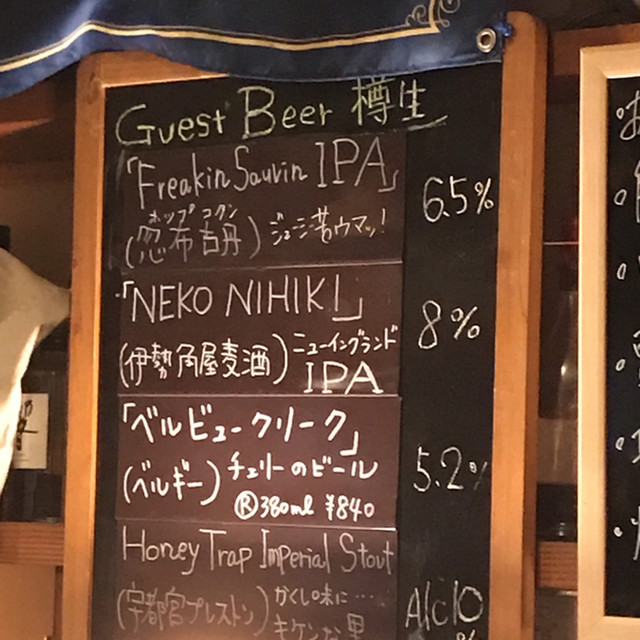 Guest Beer 樽生
「Freakin Sauvin IPA」
6.5%
ホップ コタン
(忽布古丹) ジューシ苦ウマッ!
「NEKO NIHIKI」
8%
(伊勢角屋麦酒) ニューイングランド
IPA
「ベルビュークリーク」
(ベルギー) チェリーのビール
5.2%
Ⓡ380ml ¥840
Honey Trap Imperial Stout
(宇都宮プレストン) かくし味に…
キケンな黒
Alc10
%